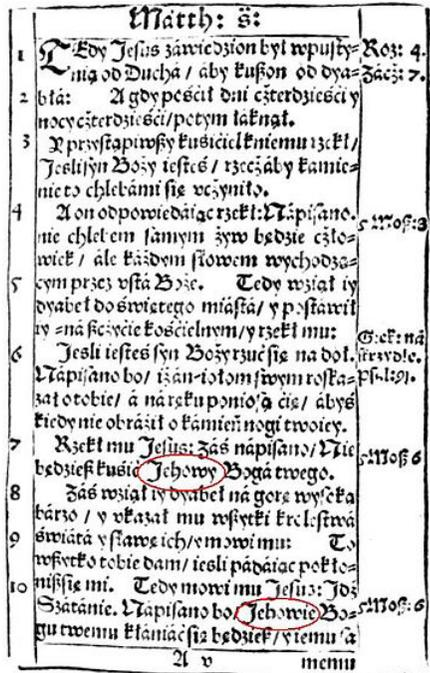 Matth: s:
1 TEdy Jesus záwiedzion był wpusty= Roz: 4.
nią od Duchá / aby kußon od dya= Zácż: 7.
2 błá: A gdy pościł dni cżterdzieści y
nocy cżterdzieści / potym łáknął.
3 Y przystąpiwßy kusiciel k niemu rzekł /
Jesliś syn Boży iesteś / rzecż áby kamie=
nie to chlebámi się vcżyniło.
4 A on odpowiedáiąc rzekł: Nápisano. 5 Moß: 8
nie chlebem samym żyw będzie cżło=
wiek / ále káżdym słowem wychodzą=
5 cym przez vstá Boże. Tedy wziął iy
dyabeł do świętego miástá / y postáwił
iy =ná ßcżycie kościelnym / y rzekł mu: Grek: ná
6 Jesli iesteś syn Boży rzuć się na doł. skrzydle.
Nápisano bo / iż án-iołom swym roska= Psál: 91.
zał o tobie / á ná ręku poniosą cię / ábyś
kiedy nie obráził o kámień nogi twoiey.
7 Rzekł mu Jesus: Zás nápisano / Nie 5 Moß 6
będzieß kusić Jehowy Bogá twego.
8 Zás wziął iy dyabeł ná gorę wysoką
bárzo / y vkazał mu wßytki krolestwá
9 świátá y sławę ich / y mowi mu: To
wßytko tobie dam / iesli pádáiąc pokło=
10 nißsię mi. Tedy mowi mu Jesus: Jdź
Szátánie. Nápisano bo / Jehowie Bo= 5 Moß: 6
gu twemu kłániáć się będzieß / y iemu sá
A v memu